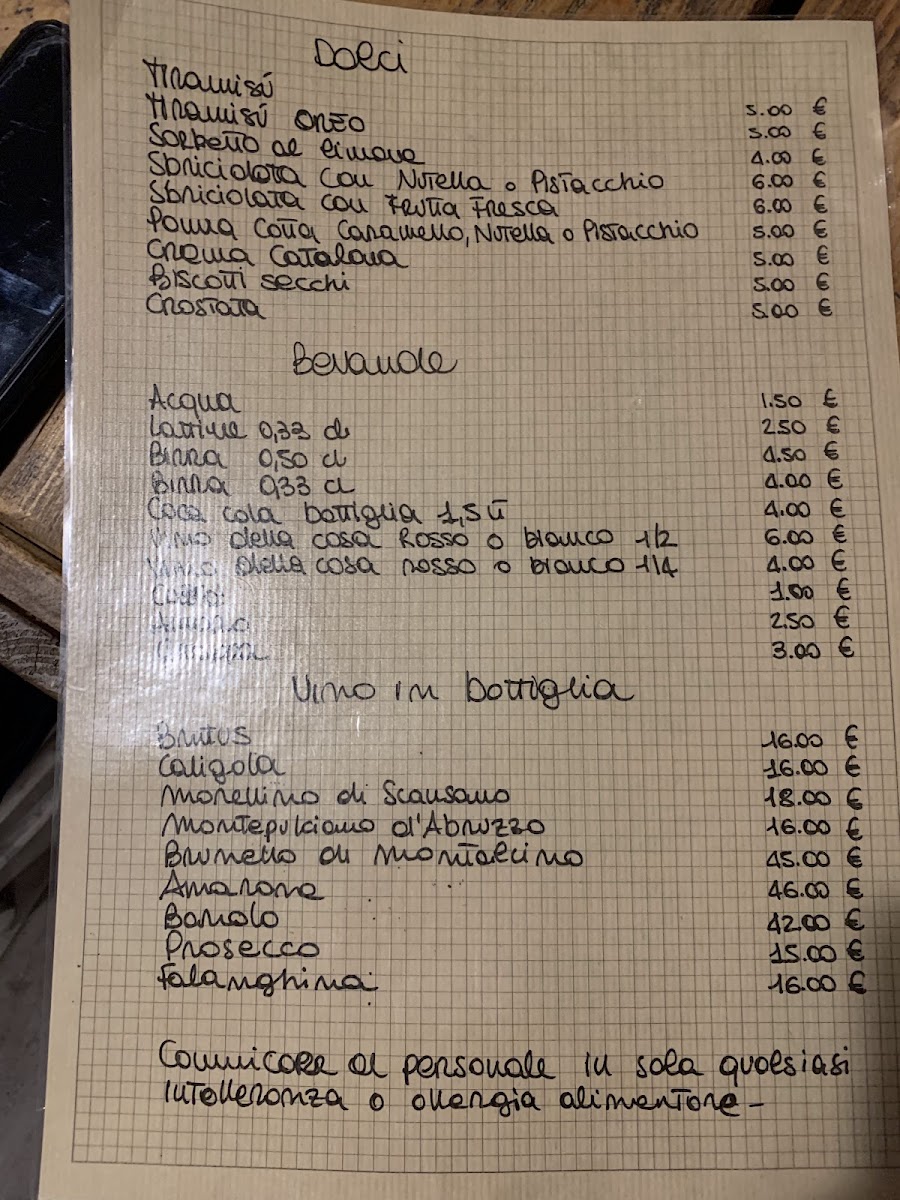 Dolci
Tiramisú
Tiramisú OREO 5.00 €
Sorbetto al limone 5.00 €
Sbriciolata con Nutella o Pistacchio 4.00 €
Sbriciolata con Frutta Fresca 6.00 €
Panna Cotta Caramello, Nutella o Pistacchio 6.00 €
Crema Catalana 5.00 €
Biscotti secchi 5.00 €
Crostata 5.00 €
5.00 €
Bevande
Acqua 1.50 €
Lattine 0,33 cl 2.50 €
Birra 0,50 cl 4.50 €
Birra 0,33 cl 4.00 €
Coca cola bottiglia 1,5 lt 4.00 €
Vino della casa Rosso o bianco 1/2 6.00 €
Vino della casa rosso o bianco 1/4 4.00 €
Caffè 1.00 €
Amaro 2.50 €
3.00 €
Vino in bottiglia
Brutus 16.00 €
Caligola 16.00 €
Morellino di Scansano 18.00 €
Montepulciano d'Abruzzo 16.00 €
Brunello di Montalcino 45.00 €
Amarone 46.00 €
Barolo 42.00 €
Prosecco 15.00 €
Falanghina 16.00 €
Comunicare al personale in sala qualsiasi
intolleranza o allergia alimentare -